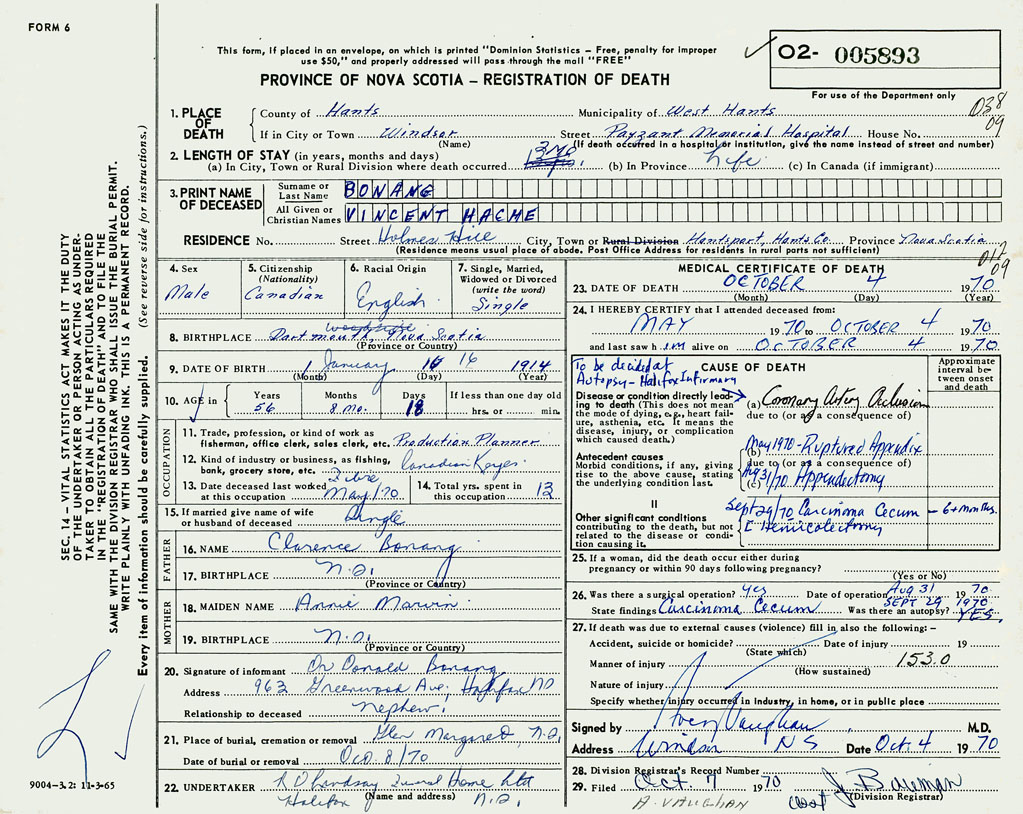 FORM 6
This form, if placed in an envelope, on which is printed "Dominion Statistics – Free, penalty for improper
use $50," and properly addressed will pass through the mail "FREE"
PROVINCE OF NOVA SCOTIA – REGISTRATION OF DEATH
02- 005893
For use of the Department only
038
09
1. PLACE OF DEATH
County of Hants Municipality of West Hants
If in City or Town Windsor Street Payzant Memorial Hospital House No.
(Name) (If death occurred in a hospital or institution, give the name instead of street and number)
2. LENGTH OF STAY (in years, months and days)
(a) In City, Town or Rural Division where death occurred (b) In Province Life (c) In Canada (if immigrant)
3. PRINT NAME OF DECEASED
Surname or Last Name BONANG
All Given or Christian Names VINCENT HACHE
RESIDENCE No. Street Holmes Hill City, Town or Rural Division Hantsport, Hants Co. Province Nova Scotia
(Residence means usual place of abode. Post Office Address for residents in rural parts not sufficient)
017
09
4. Sex
Male
5. Citizenship
(Nationality)
Canadian
6. Racial Origin
English
7. Single, Married, Widowed or Divorced
(write the word)
Single
8. BIRTHPLACE Dartmouth, Nova Scotia
(Province or Country)
9. DATE OF BIRTH January 16 16 1914
(Month) (Day) (Year)
10. AGE in
Years 56
Months 8 Mo.
Days 18
If less than one day old
hrs. or min.
OCCUPATION
11. Trade, profession, or kind of work as
fisherman, office clerk, sales clerk, etc. Production Planner
12. Kind of industry or business, as fishing,
bank, grocery store, etc. Canadian Keyes Fibre
13. Date deceased last worked
at this occupation May/70
14. Total yrs. spent in
this occupation 13
15. If married give name of wife
or husband of deceased Single
FATHER
16. NAME Clarence Bonang
17. BIRTHPLACE N.S.
(Province or Country)
MOTHER
18. MAIDEN NAME Annie Marvin
19. BIRTHPLACE N.S.
(Province or Country)
20. Signature of informant Donald Bonang
Address 963 Greenwood Ave, Halifax NS
Relationship to deceased Nephew.
21. Place of burial, cremation or removal Glen Margaret, N.S.
Date of burial or removal Oct. 8/70
22. UNDERTAKER Lindsay Funeral Home Ltd
Halifax (Name and address) N.S.
MEDICAL CERTIFICATE OF DEATH
23. DATE OF DEATH OCTOBER 4 1970
(Month) (Day) (Year)
24. I HEREBY CERTIFY that I attended deceased from:
MAY 1970 to OCTOBER 4 1970
and last saw him alive on OCTOBER 4 1970
To be decided at
Autopsy - Halifax Infirmary
CAUSE OF DEATH
Approximate interval between onset and death
I
Disease or condition directly leading to death (This does not mean the mode of dying, e.g., heart failure, asthenia, etc. It means the disease, injury, or complication which caused death.)
(a) Coronary Artery Occlusion
due to (or as a consequence of)
Antecedent causes
Morbid conditions, if any, giving rise to the above cause, stating the underlying condition last.
(b) May 1970 - Ruptured Appendix
due to (or as a consequence of)
(c) Aug 31/70 Appendectomy
II
Other significant conditions contributing to the death, but not related to the disease or condition causing it.
Sept 29/70 Carcinoma Cecum - 6+ months.
Hemicolectomy
25. If a woman, did the death occur either during
pregnancy or within 90 days following pregnancy?
(Yes or No)
26. Was there a surgical operation? yes Date of operation Aug 31 1970
SEPT 29 1970
State findings Carcinoma Cecum Was there an autopsy? YES.
27. If death was due to external causes (violence) fill in also the following: –
Accident, suicide or homicide? Date of injury 19
(State which)
Manner of injury 153.0
(How sustained)
Nature of injury
Specify whether injury occurred in industry, in home, or in public place
Signed by Vaughan M.D.
Address Windsor NS Date Oct. 4 1970
28. Division Registrar's Record Number
29. Filed Oct. 7 1970 J Bauman
A. VAUGHAN (Division Registrar)
SEC. 14 – VITAL STATISTICS ACT MAKES IT THE DUTY
OF THE UNDERTAKER OR PERSON ACTING AS UNDER-
TAKER TO OBTAIN ALL THE PARTICULARS REQUIRED
IN THE "REGISTRATION OF DEATH" AND TO FILE THE
SAME WITH THE DIVISION REGISTRAR WHO SHALL ISSUE THE BURIAL PERMIT.
WRITE PLAINLY WITH UNFADING INK. THIS IS A PERMANENT RECORD.
Every item of information should be carefully supplied. (See reverse side for instructions.)
9004–3.2: 11-3-65